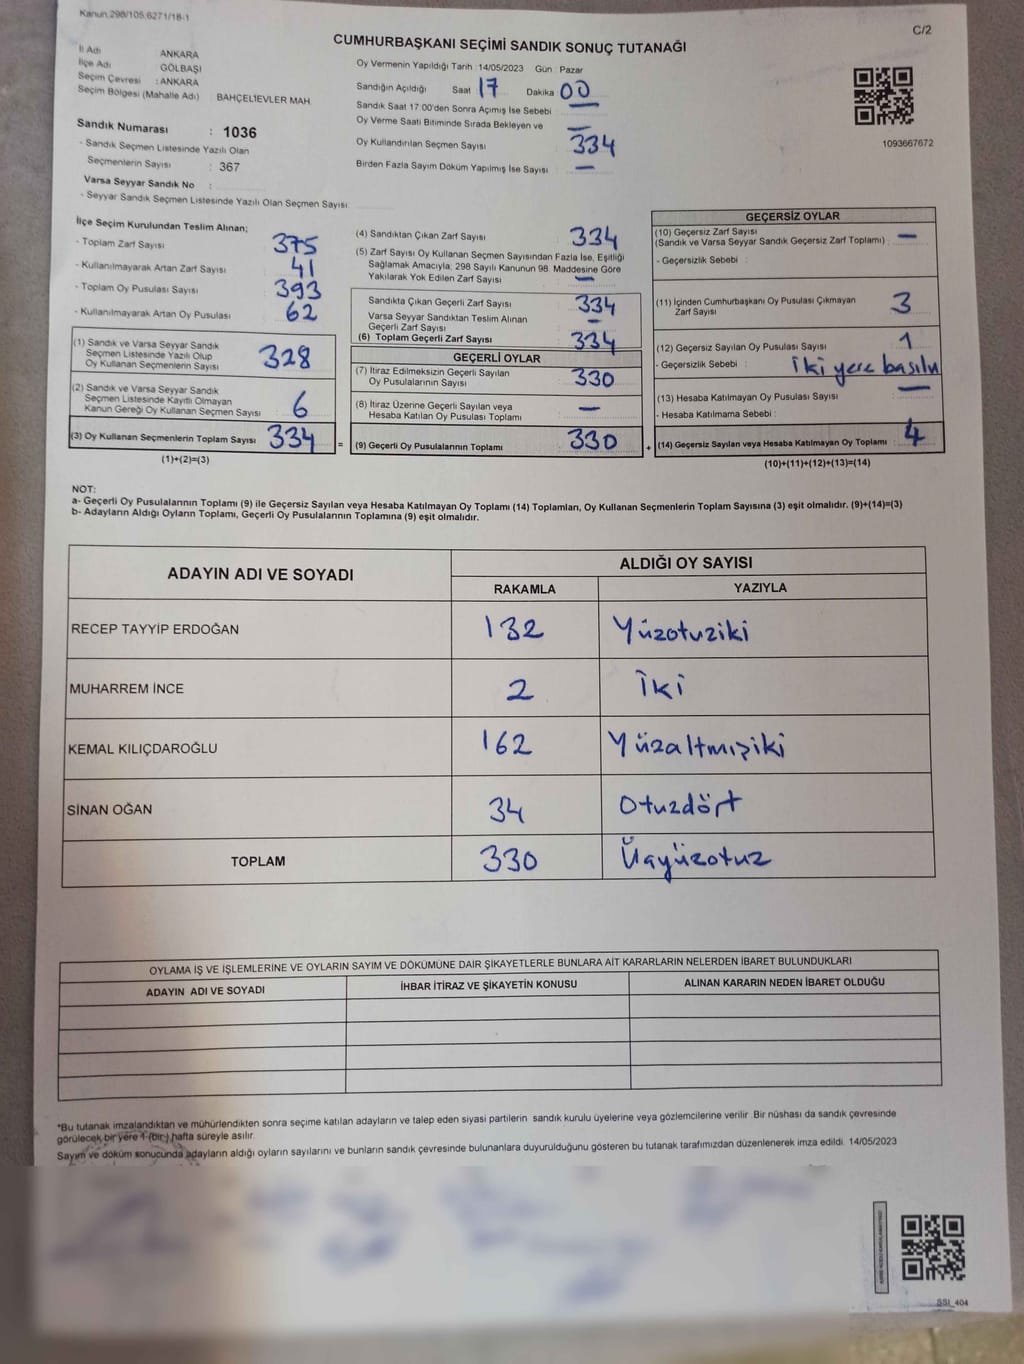 Kanun.298/105,6271/18-1
C/2
CUMHURBAŞKANI SEÇİMİ SANDIK SONUÇ TUTANAĞI
İl Adı ANKARA
İlçe Adı GÖLBAŞI
Seçim Çevresi : ANKARA
Seçim Bölgesi (Mahalle Adı) BAHÇELİEVLER MAH
Sandık Numarası : 1036
- Sandık Seçmen Listesinde Yazılı Olan
Seçmenlerin Sayısı : 367
Varsa Seyyar Sandık No :
- Seyyar Sandık Seçmen Listesinde Yazılı Olan Seçmen Sayısı
Oy Vermenin Yapıldığı Tarih : 14/05/2023 Gün : Pazar
Sandığın Açıldığı Saat 17 Dakika 00
Sandık Saat 17.00'den Sonra Açımış İse Sebebi —
Oy Verme Saati Bitiminde Sırada Bekleyen ve
Oy Kullandırılan Seçmen Sayısı — 334
Birden Fazla Sayım Döküm Yapılmış İse Sayısı —
1093667672
İlçe Seçim Kurulundan Teslim Alınan;
- Toplam Zarf Sayısı 375
- Kullanılmayarak Artan Zarf Sayısı 41
- Toplam Oy Pusulası Sayısı 393
- Kullanılmayarak Artan Oy Pusulası 62
(1) Sandık ve Varsa Seyyar Sandık
Seçmen Listesinde Yazılı Olup
Oy Kullanan Seçmenlerin Sayısı 328
(2) Sandık ve Varsa Seyyar Sandık
Seçmen Listesinde Kayıtlı Olmayan
Kanun Gereği Oy Kullanan Seçmen Sayısı 6
(3) Oy Kullanan Seçmenlerin Toplam Sayısı 334 =
(1)+(2)=(3)
(4) Sandıktan Çıkan Zarf Sayısı 334
(5) Zarf Sayısı Oy Kullanan Seçmen Sayısından Fazla İse, Eşitliği
Sağlamak Amacıyla; 298 Sayılı Kanunun 98. Maddesine Göre
Yakılarak Yok Edilen Zarf Sayısı —
Sandıkta Çıkan Geçerli Zarf Sayısı 334
Varsa Seyyar Sandıktan Teslim Alınan
Geçerli Zarf Sayısı —
(6) Toplam Geçerli Zarf Sayısı 334
GEÇERLİ OYLAR
(7) İtiraz Edilmeksizin Geçerli Sayılan
Oy Pusulalarının Sayısı 330
(8) İtiraz Üzerine Geçerli Sayılan veya
Hesaba Katılan Oy Pusulası Toplamı —
(9) Geçerli Oy Pusulalarının Toplamı 330 +
GEÇERSİZ OYLAR
(10) Geçersiz Zarf Sayısı —
(Sandık ve Varsa Seyyar Sandık Geçersiz Zarf Toplamı) :
- Geçersizlik Sebebi :
(11) İçinden Cumhurbaşkanı Oy Pusulası Çıkmayan
Zarf Sayısı 3
(12) Geçersiz Sayılan Oy Pusulası Sayısı 1
- Geçersizlik Sebebi : iki yere basılu
(13) Hesaba Katılmayan Oy Pusulası Sayısı —
- Hesaba Katılmama Sebebi :
(14) Geçersiz Sayılan veya Hesaba Katılmayan Oy Toplamı : 4
(10)+(11)+(12)+(13)=(14)
NOT:
a- Geçerli Oy Pusulalarının Toplamı (9) ile Geçersiz Sayılan veya Hesaba Katılmayan Oy Toplamı (14) Toplamları, Oy Kullanan Seçmenlerin Toplam Sayısına (3) eşit olmalıdır. (9)+(14)=(3)
b- Adayların Aldığı Oyların Toplamı, Geçerli Oy Pusulalarının Toplamına (9) eşit olmalıdır.
ADAYIN ADI VE SOYADI ALDIĞI OY SAYISI
RAKAMLA YAZIYLA
RECEP TAYYİP ERDOĞAN 132 Yüzotuziki
MUHARREM İNCE 2 İki
KEMAL KILIÇDAROĞLU 162 Yüzaltmışiki
SİNAN OĞAN 34 Otuzdört
TOPLAM 330 Üçyüzotuz
OYLAMA İŞ VE İŞLEMLERİNE VE OYLARIN SAYIM VE DÖKÜMÜNE DAİR ŞİKAYETLERLE BUNLARA AİT KARARLARIN NELERDEN İBARET BULUNDUKLARI
ADAYIN ADI VE SOYADI İHBAR İTİRAZ VE ŞİKAYETİN KONUSU ALINAN KARARIN NEDEN İBARET OLDUĞU
*Bu tutanak imzalandıktan ve mühürlendikten sonra seçime katılan adayların ve talep eden siyasi partilerin sandık kurulu üyelerine veya gözlemcilerine verilir. Bir nüshası da sandık çevresinde
görülecek bir yere 1 (bir) hafta süreyle asılır.
Sayım ve döküm sonucunda adayların aldığı oyların sayılarını ve bunların sandık çevresinde bulunanlara duyurulduğunu gösteren bu tutanak tarafımızdan düzenlenerek imza edildi. 14/05/2023
SSİ_404